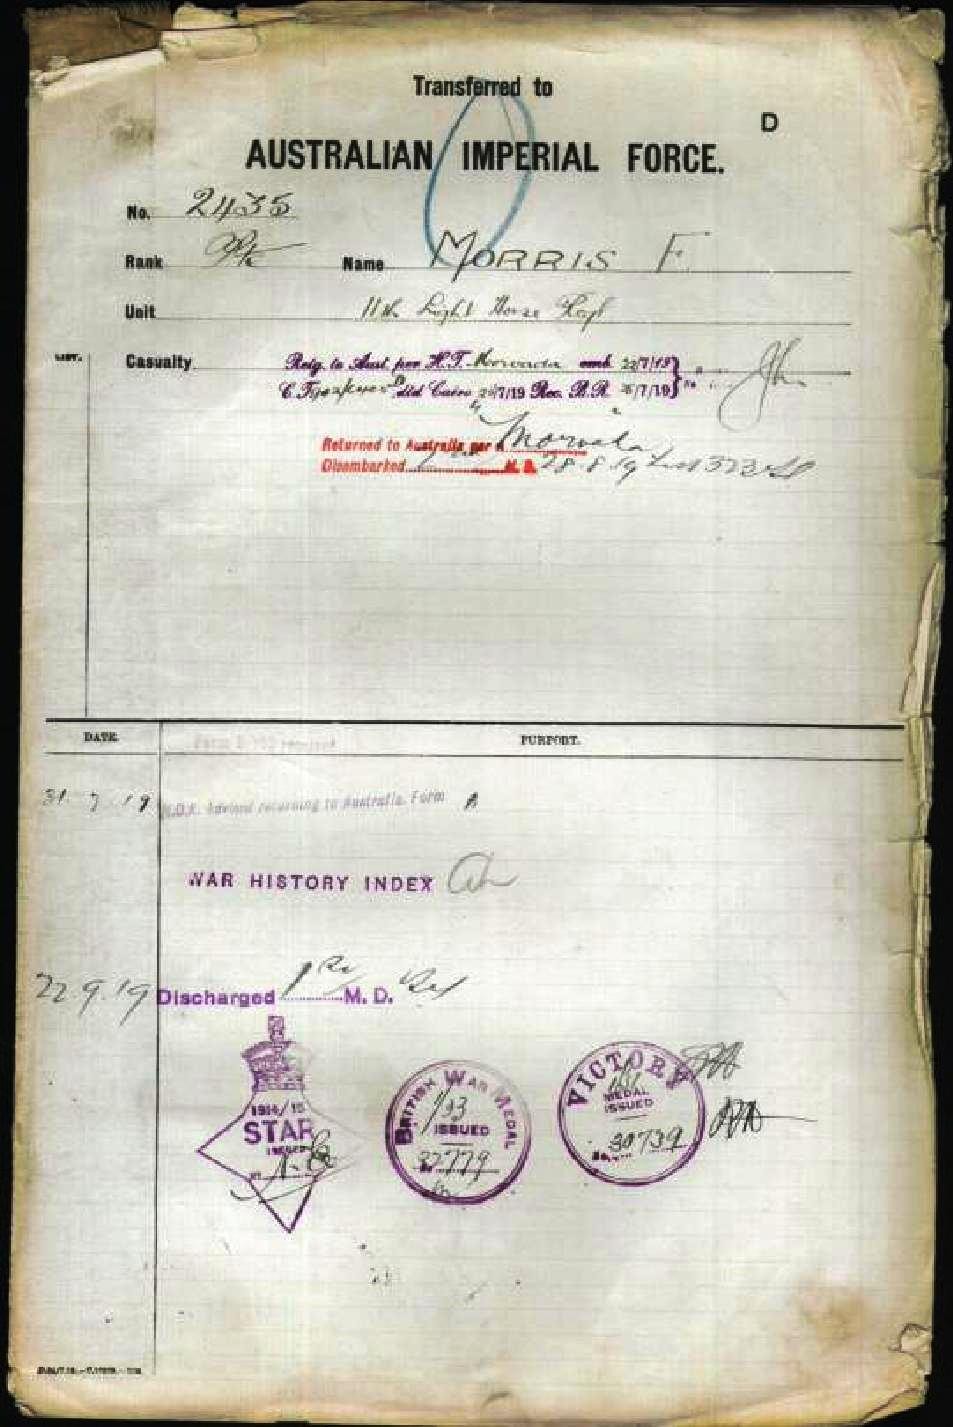 Transferred to
D
AUSTRALIAN IMPERIAL FORCE.
No. 2435
Rank Pte Name MORRIS F.
Unit 11th Light Horse Regt
LIST. Casualty Retg. to Aust. per H.T. Morvada emb 22/7/19
did Cairo 24/7/19 Rec. B.R. /7/19
Returned to Australia per Morvada
Disembarked M. D. 28.8.19
DATE. PURPORT.
31 7 19 N.O.K. Advised returning to Australia. Form A
WAR HISTORY INDEX
22.9.19 Discharged 1st M. D.
1914/15
STAR
ISSUED
BRITISH WAR MEDAL
ISSUED
32779
VICTORY
MEDAL
ISSUED
No. 30739